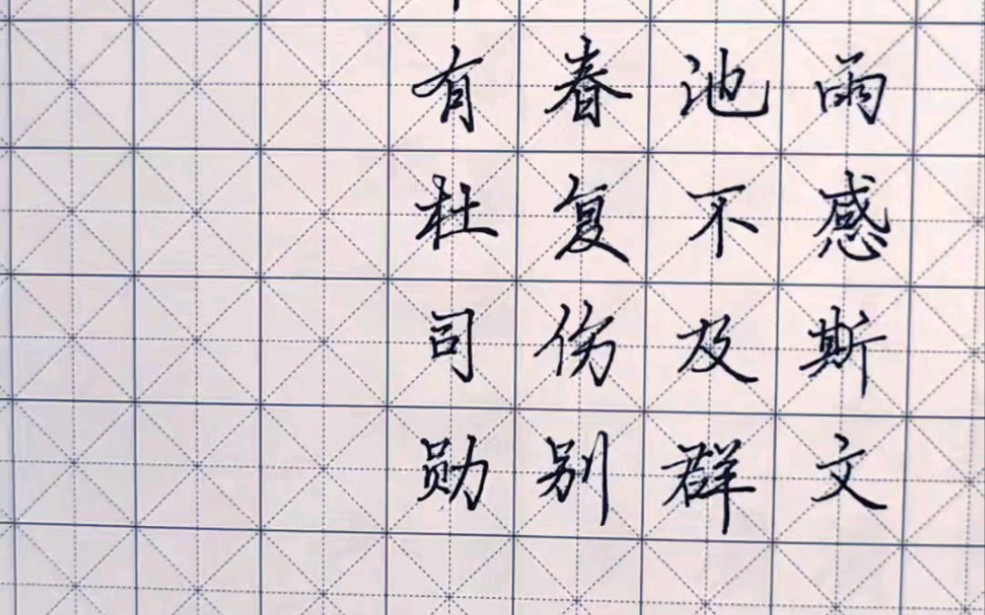 雨感斯文
池不及群
春复伤别
有杜司勋